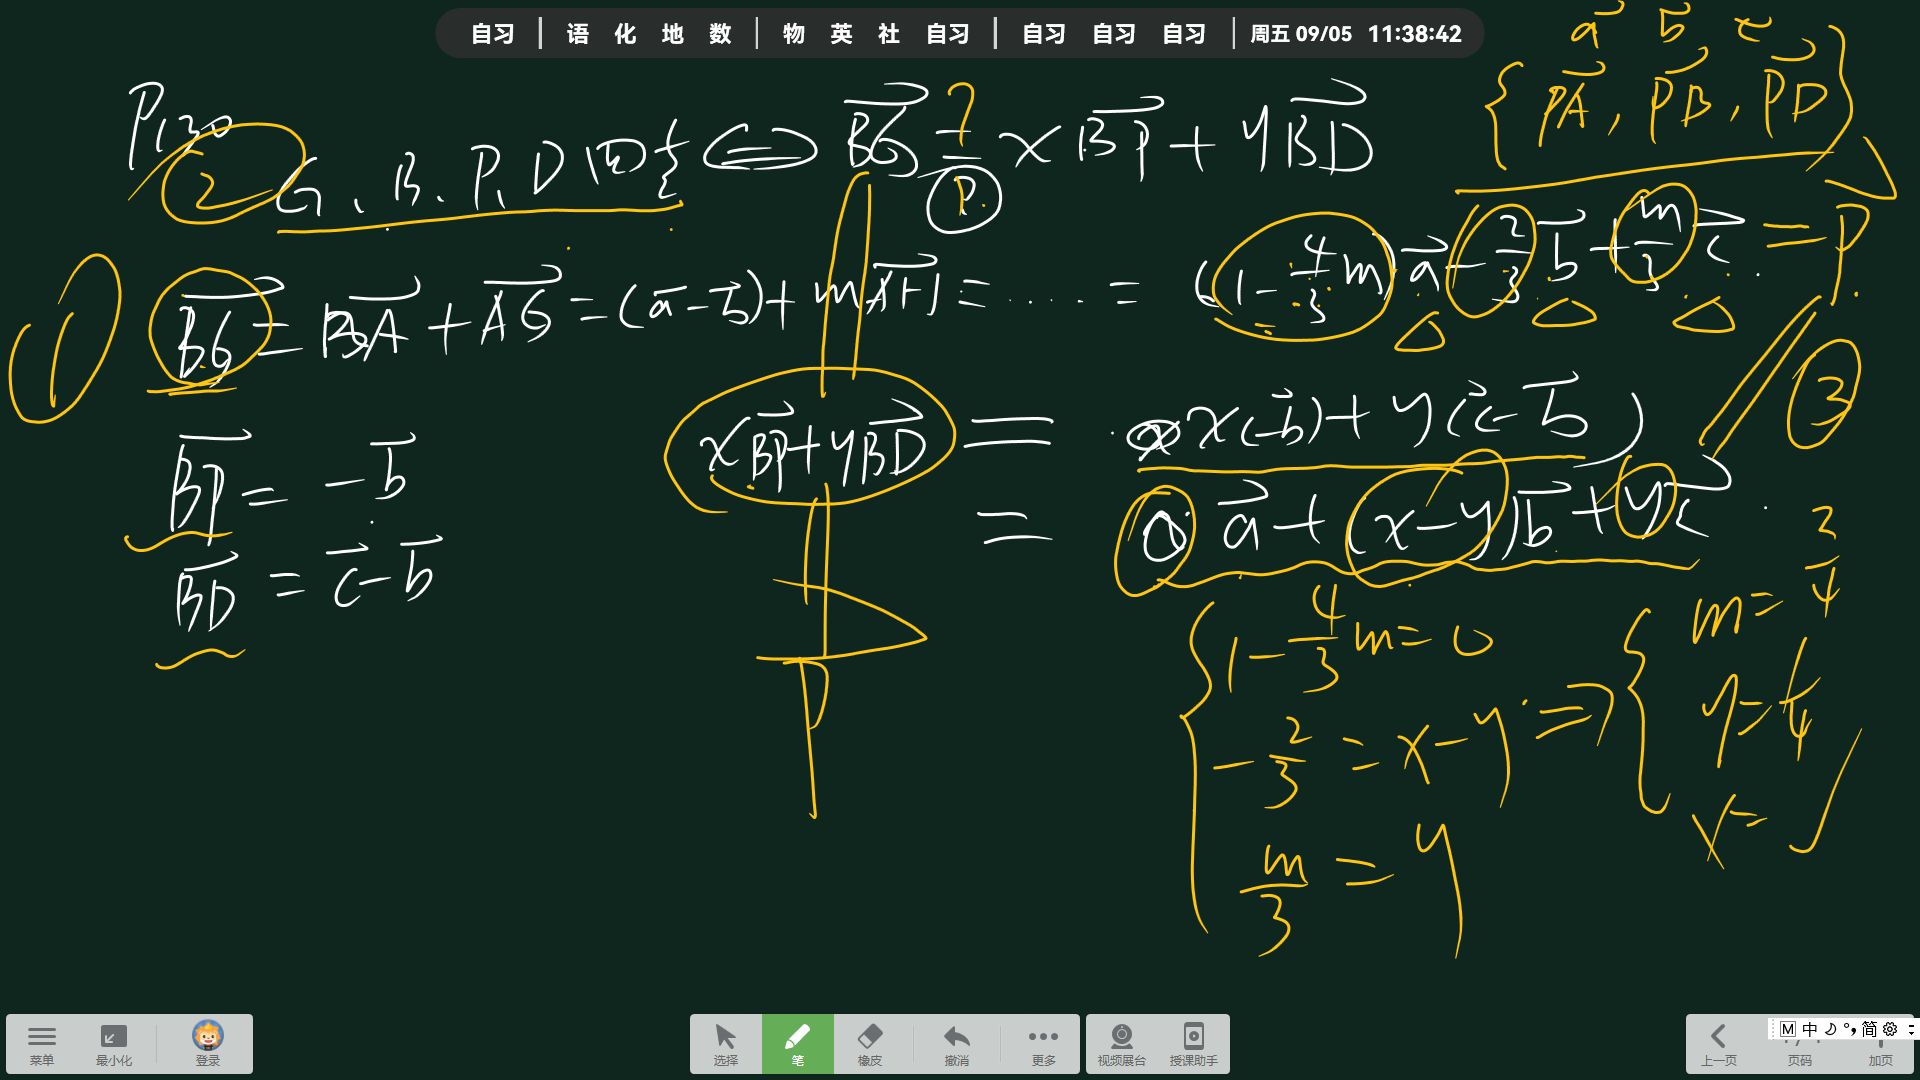 自习 | 语 化 地 数 | 物 英 社 自习 | 自习 自习 自习 | 周五 09/05 11:38:42
a⃗ b⃗ c⃗
{PA⃗, PB⃗, PD⃗}
P130
② G、B、P、D四 ⟺ BG⃗ =? xBP⃗ + yBD⃗
P
① BG⃗ = BA⃗ + AG⃗ = (a⃗ - b⃗) + mAH⃗ = ...... = (1 - 4/3 m)a⃗ - 2/3 b⃗ + m/3 c⃗ = P
③
BP⃗ = -b⃗
BD⃗ = c⃗ - b⃗
xBP⃗ + yBD⃗ = x(-b⃗) + y(c⃗ - b⃗)
= 0a⃗ + (x-y)b⃗ + yc⃗
P
1 - 4/3 m = 0
-2/3 = x - y
m/3 = y
⇒
m = 3/4
y = 1/4
x =
菜单 最小化 登录
选择 笔 橡皮 撤消 更多
视频展台 授课助手
上一页 页码 加页
M 中 简